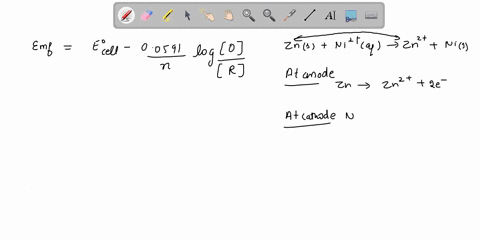 Emf = E°cell - 0.0591/n log [O]/[R]
Zn(s) + Ni²⁺(aq) → Zn²⁺ + Ni(s)
At anode
Zn → Zn²⁺ + 2e⁻
At cathode N